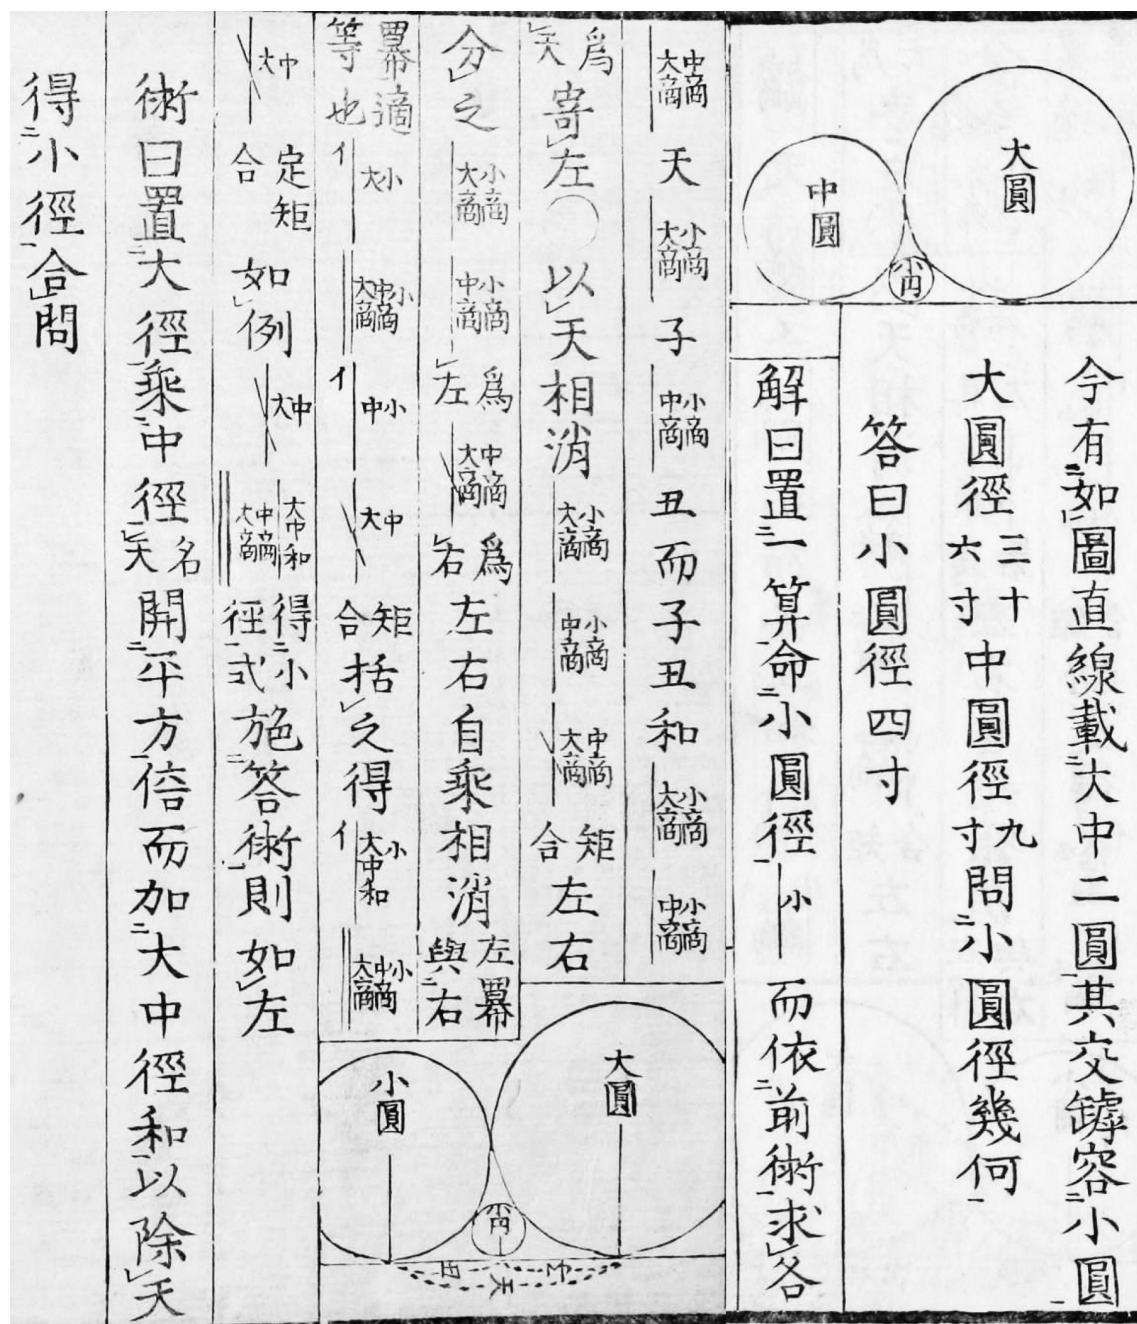 大圓
中圓
小円
今有如圖直線載大中二圓其交罅容小圓
大圓徑三十六寸中圓徑九寸問小圓徑幾何
答曰小圓徑四寸
解曰置一算命小圓徑小而依前術求各
中商大商天小商大商子小商中商丑而子丑和小商大商小商中商
爲天寄左○以天相消小商大商小商中商中商大商矩合左右
分之小商大商小商中商爲左中商大商爲右左右自乘相消左冪與右
冪適等也小大小中商大商小中中大矩合括之得小大中和小中商大商
中大定矩合如例中大大中和中商大商得小徑式施答術則如左
術曰置大徑乘中徑名天開平方倍而加大中徑和以除天
得小徑合問
大圓
小圓
小円
子
天
丑